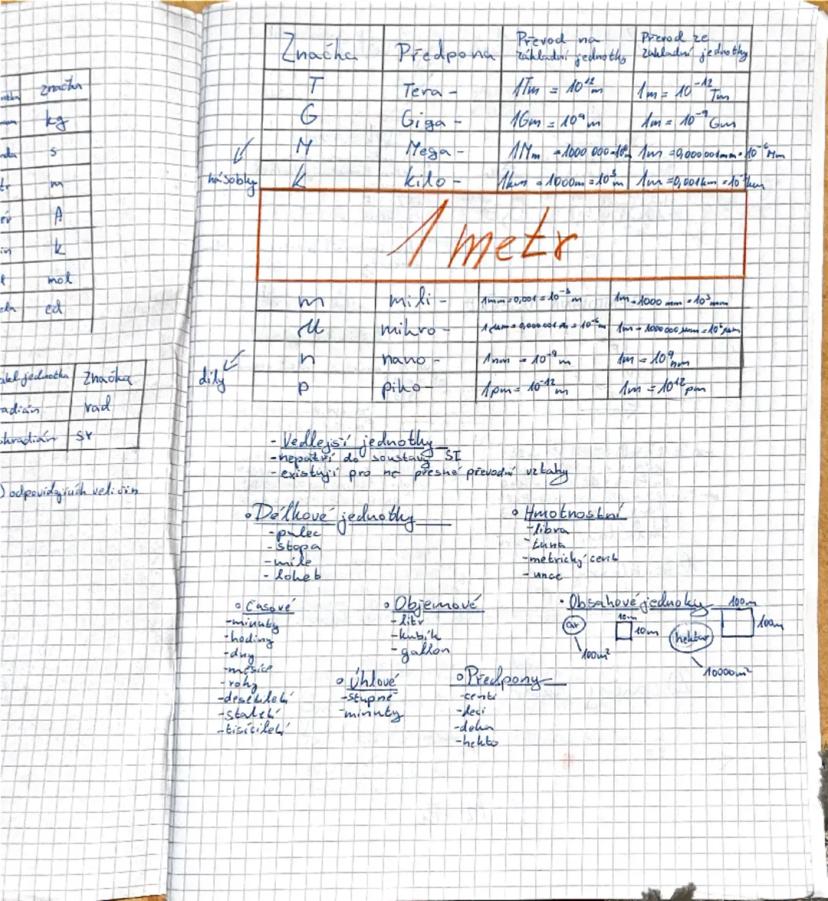 značka
kg
s
m
A
k
mol
cd
jednotka Značka
radián rad
sr
odpovídajících veličin
Značka Předpona Převod na základní jednotky Převod ze základní jednotky
T Tera- 1Tm = 10¹²m 1m = 10⁻¹²Tm
G Giga- 1Gm = 10⁹m 1m = 10⁻⁹Gm
M Mega- 1Mm = 1000 000 = 10⁶m 1m = 0,000001Mm = 10⁻⁶Mm
násobky
k kilo- 1km = 1000m = 10³m 1m = 0,001km = 10⁻³km
1 metr
m mili- 1mm = 0,001 = 10⁻³m 1m = 1000 mm = 10³mm
μ mikro- 1μm = 0,000001m = 10⁻⁶m 1m = 1000 000μm = 10⁶μm
n nano- 1nm = 10⁻⁹m 1m = 10⁹nm
díly
p piko- 1pm = 10⁻¹²m 1m = 10¹²pm
- Vedlejší jednotky
- nepatří do soustavy SI
- existují pro ně přesné převodní vztahy
• Délkové jednotky
- palec
- stopa
- míle
- loket
• Hmotnostní
- libra
- tuna
- metrický cent
- unce
• Časové
- minuty
- hodiny
- dny
- měsíce
- roky
- desetiletí
- staletí
- tisíciletí
• Objemové
- litr
- kubík
- gallon
• Obsahové jednoky
ar
10m
10m
100m²
hektar
100m
100m
10000m²
• Úhlové
- stupně
- minuty
• Předpony
- centi
- deci
- deka
- hekto